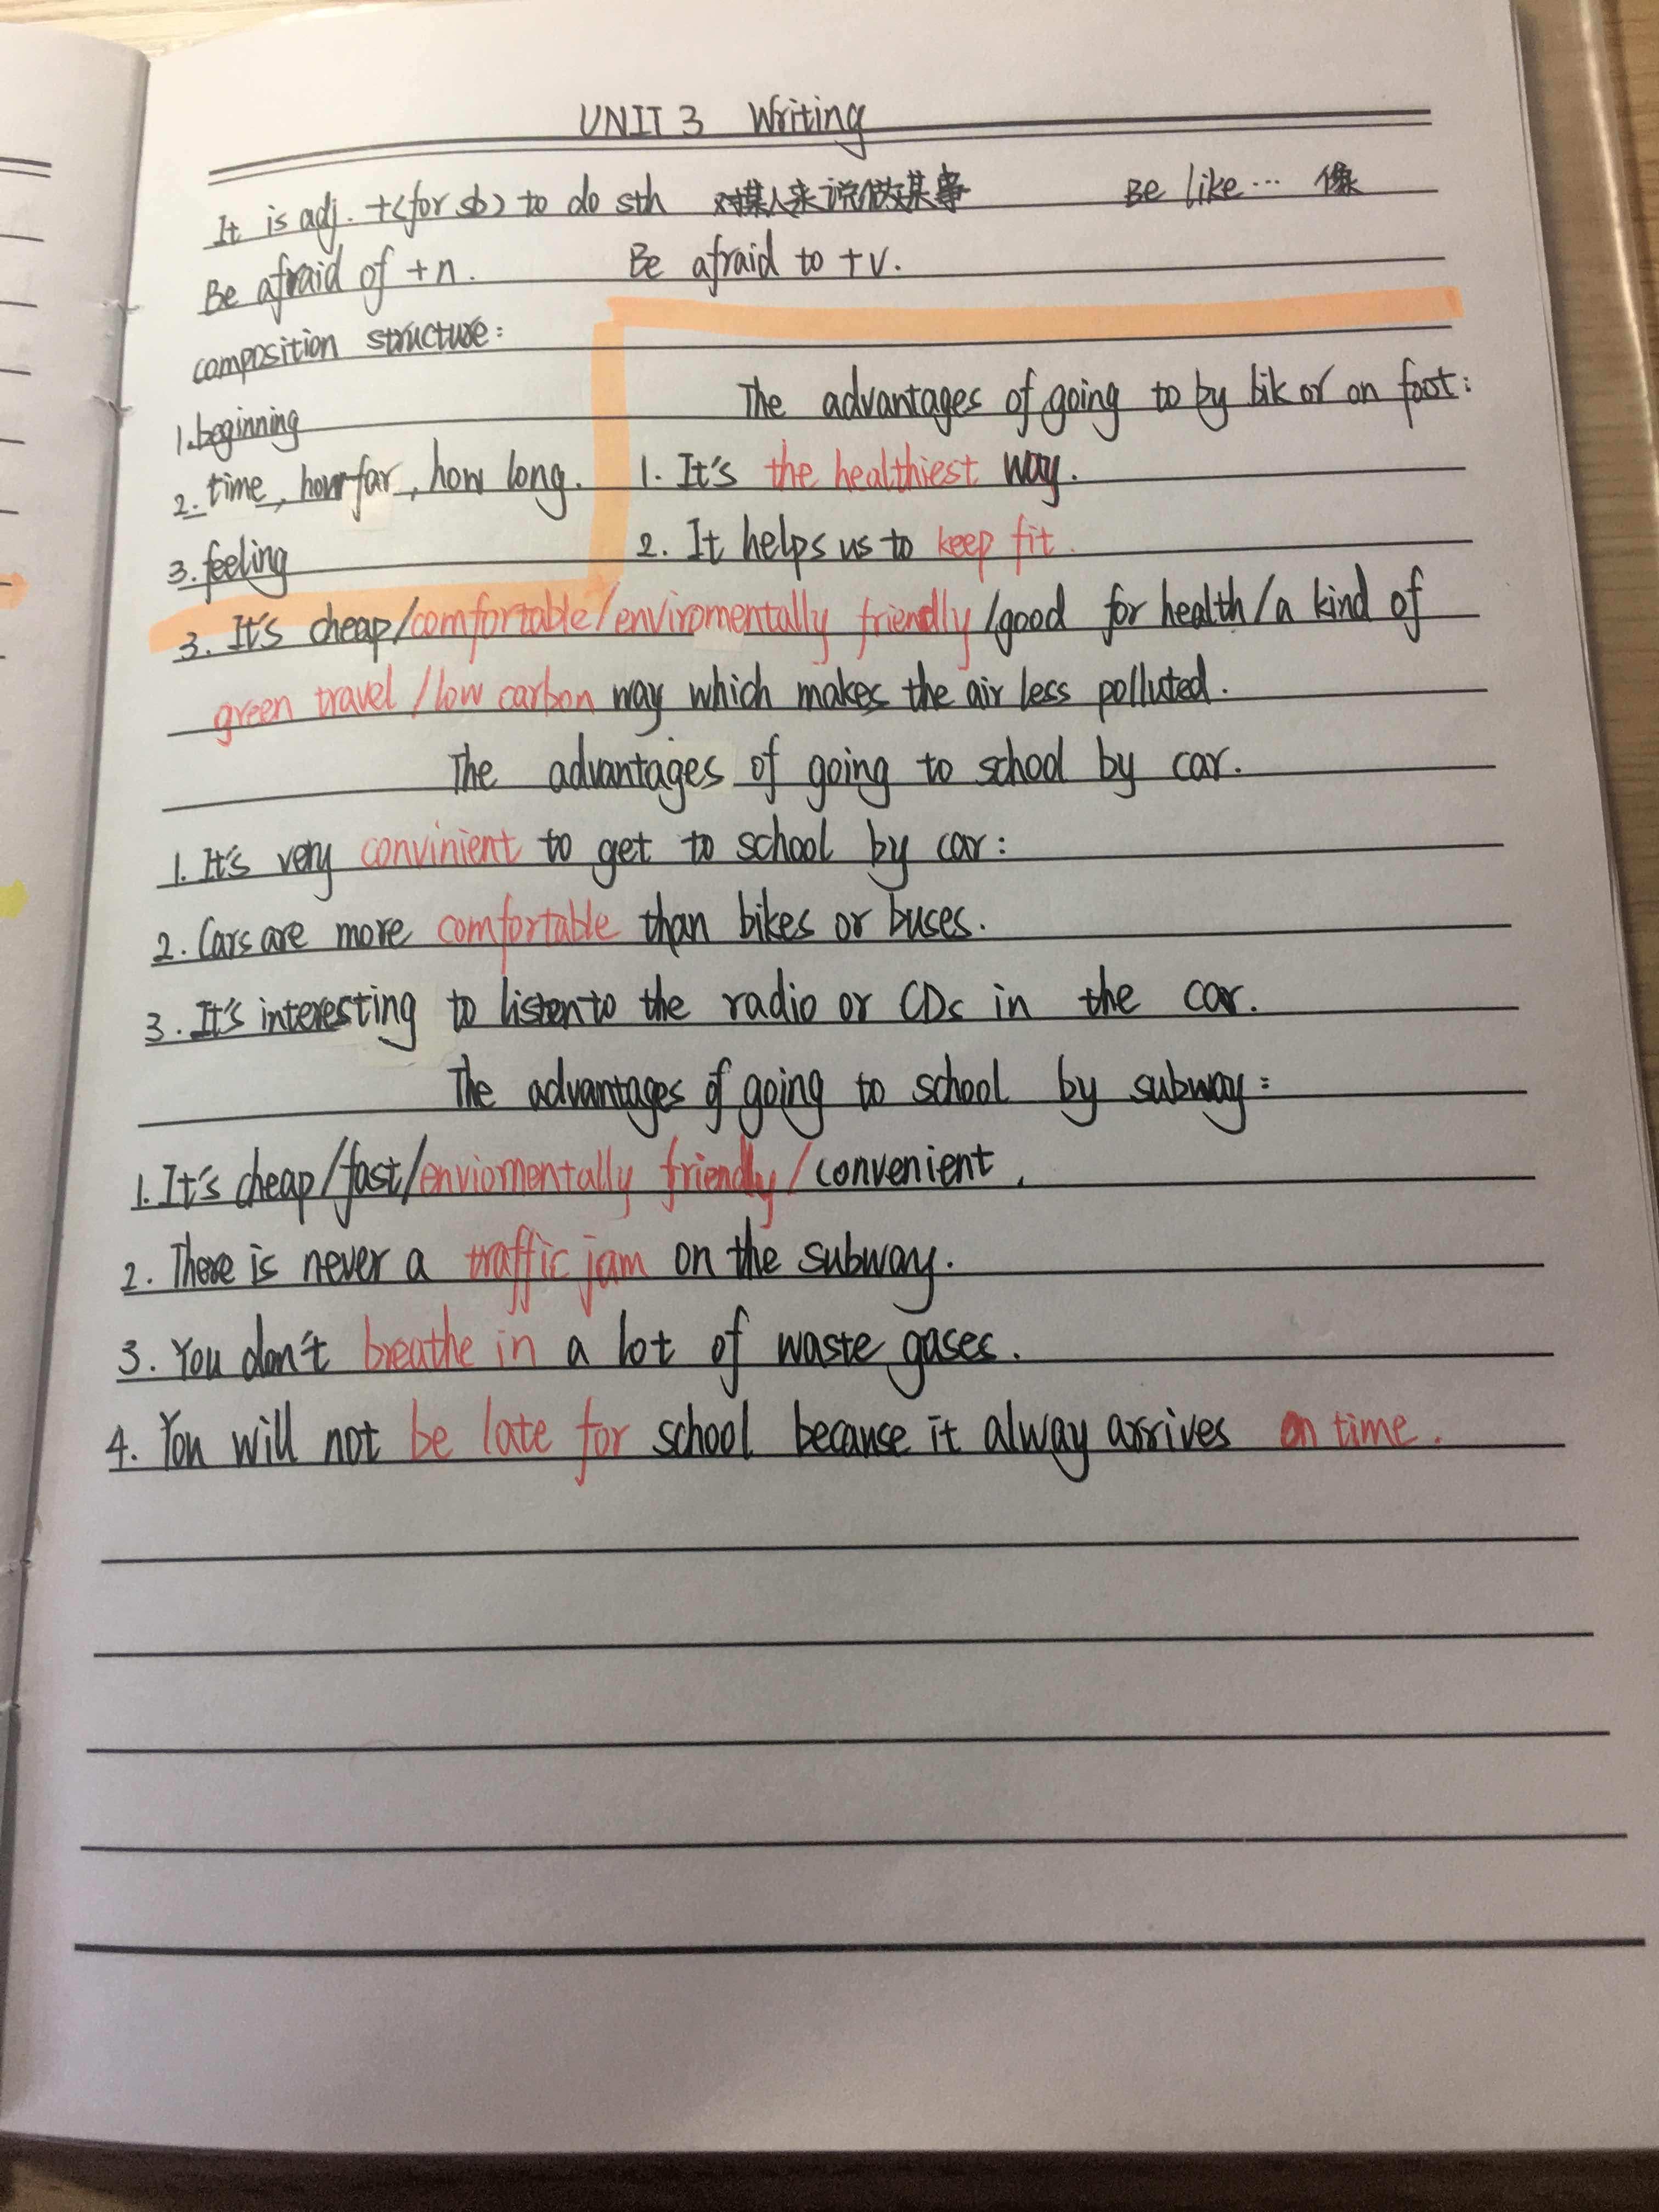 UNIT 3 Writing
It is adj. +(for sb) to do sth 对某人来说做某事 Be like... 像
Be afraid of +n. Be afraid to +v.
composition structure:
The advantages of going to by bik or on foot:
1.beginning
2. time, how far, how long. 1. It's the healthiest way.
3. feeling 2. It helps us to keep fit.
3. It's cheap/comfortable/enviromentally friendly/good for health/a kind of
green travel/low carbon way which makes the air less polluted.
The advantages of going to school by car.
1. It's very convinient to get to school by car:
2. Cars are more comfortable than bikes or buses.
3. It's interesting to listen to the radio or CDs in the car.
The advantages of going to school by subway:
1. It's cheap/fast/enviomentally friendly/convenient.
2. There is never a traffic jam on the subway.
3. You don't breathe in a lot of waste gases.
4. You will not be late for school because it alway arrives on time.